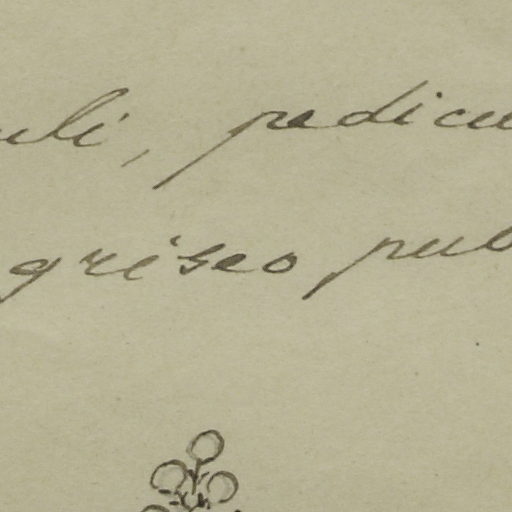 uli, pedicu
griseo pub